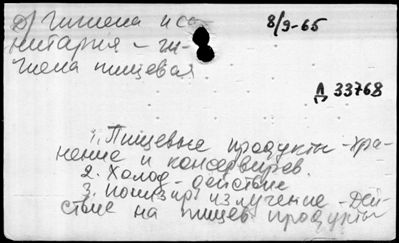 д) гигиена и са-
нитария – ги-
гиена пищевая
8/9-65
Д 33768
1. Пищевые продукты – хра-
нение и консервиров.
2. Холод – действие
3. ионизир. излучение – дей-
ствие на пищев. продукты